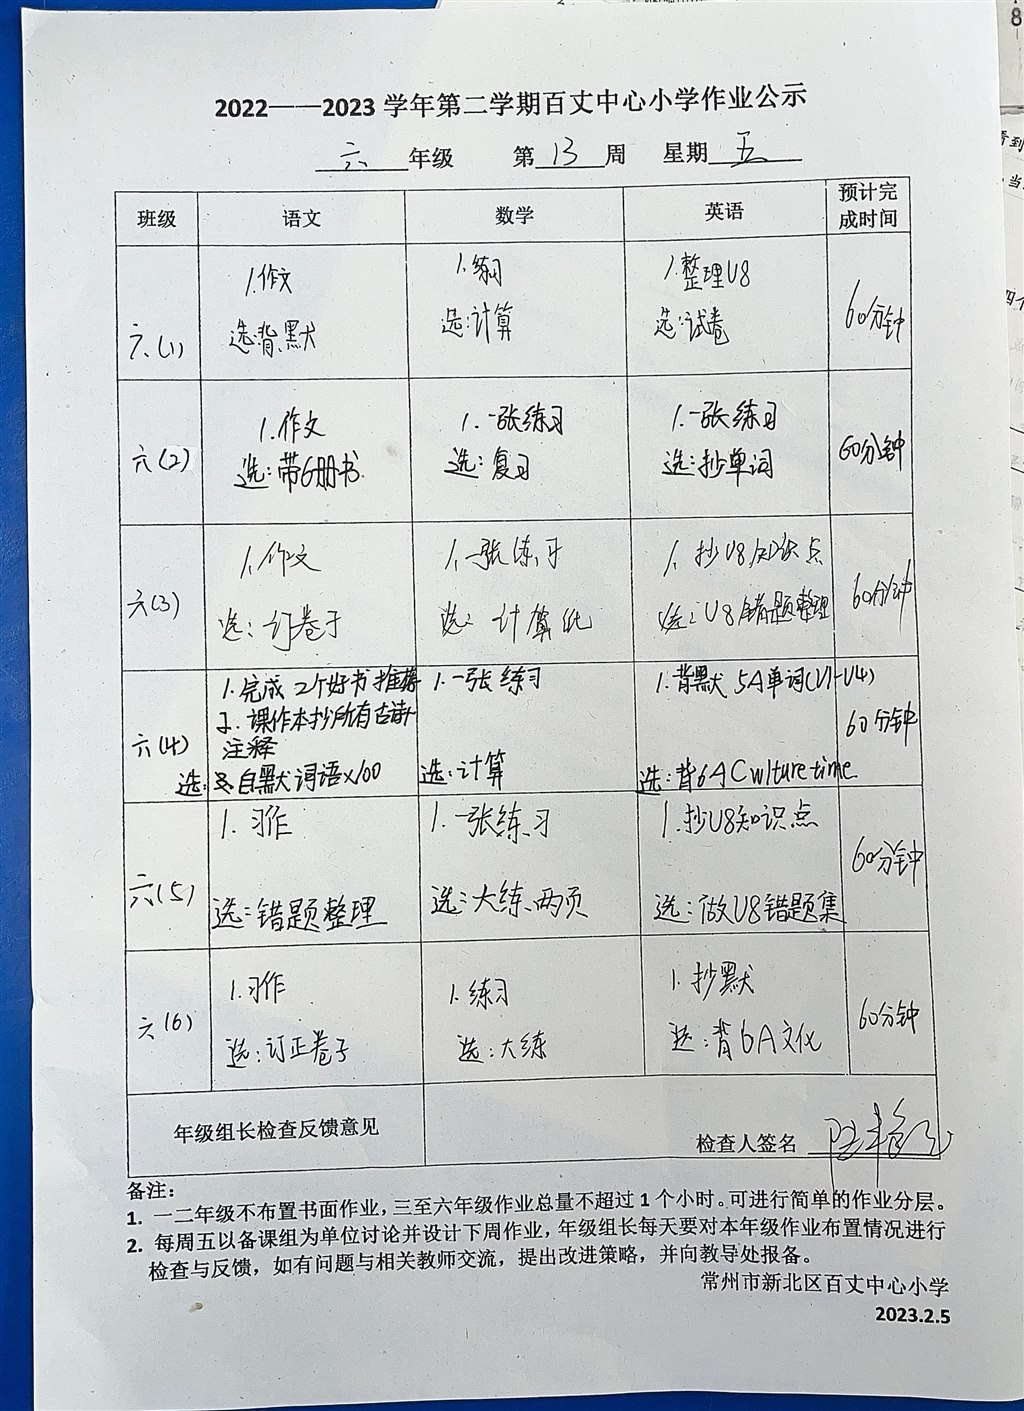 2022——2023 学年第二学期百丈中心小学作业公示
六 年级 第 13 周 星期 五
班级 语文 数学 英语 预计完成时间
六(1)
1.作文
选:背、默
1.练习
选:计算
1.整理U8
选:试卷
60分钟
六(2)
1.作文
选:带6册书
1.一张练习
选:复习
1.一张练习
选:抄单词
60分钟
六(3)
1.作文
选:订卷子
1.一张练习
选:计算纸
1.抄U8知识点
选:U8错题整理
60分钟
六(4)
1.完成2个好书推荐
2.课作本抄所有古诗+
注释
选:3.自默词语×100
1.一张练习
选:计算
1.背默5A单词(U1-U4)
选:背6A Culture time
60分钟
六(5)
1.习作
选:错题整理
1.一张练习
选:大练两页
1.抄U8知识点
选:做U8错题集
60分钟
六(6)
1.习作
选:订正卷子
1.练习
选:大练
1.抄默
选:背6A文化
60分钟
年级组长检查反馈意见
检查人签名
备注:
1. 一二年级不布置书面作业，三至六年级作业总量不超过1个小时。可进行简单的作业分层。
2. 每周五以备课组为单位讨论并设计下周作业，年级组长每天要对本年级作业布置情况进行
检查与反馈，如有问题与相关教师交流，提出改进策略，并向教导处报备。
常州市新北区百丈中心小学
2023.2.5